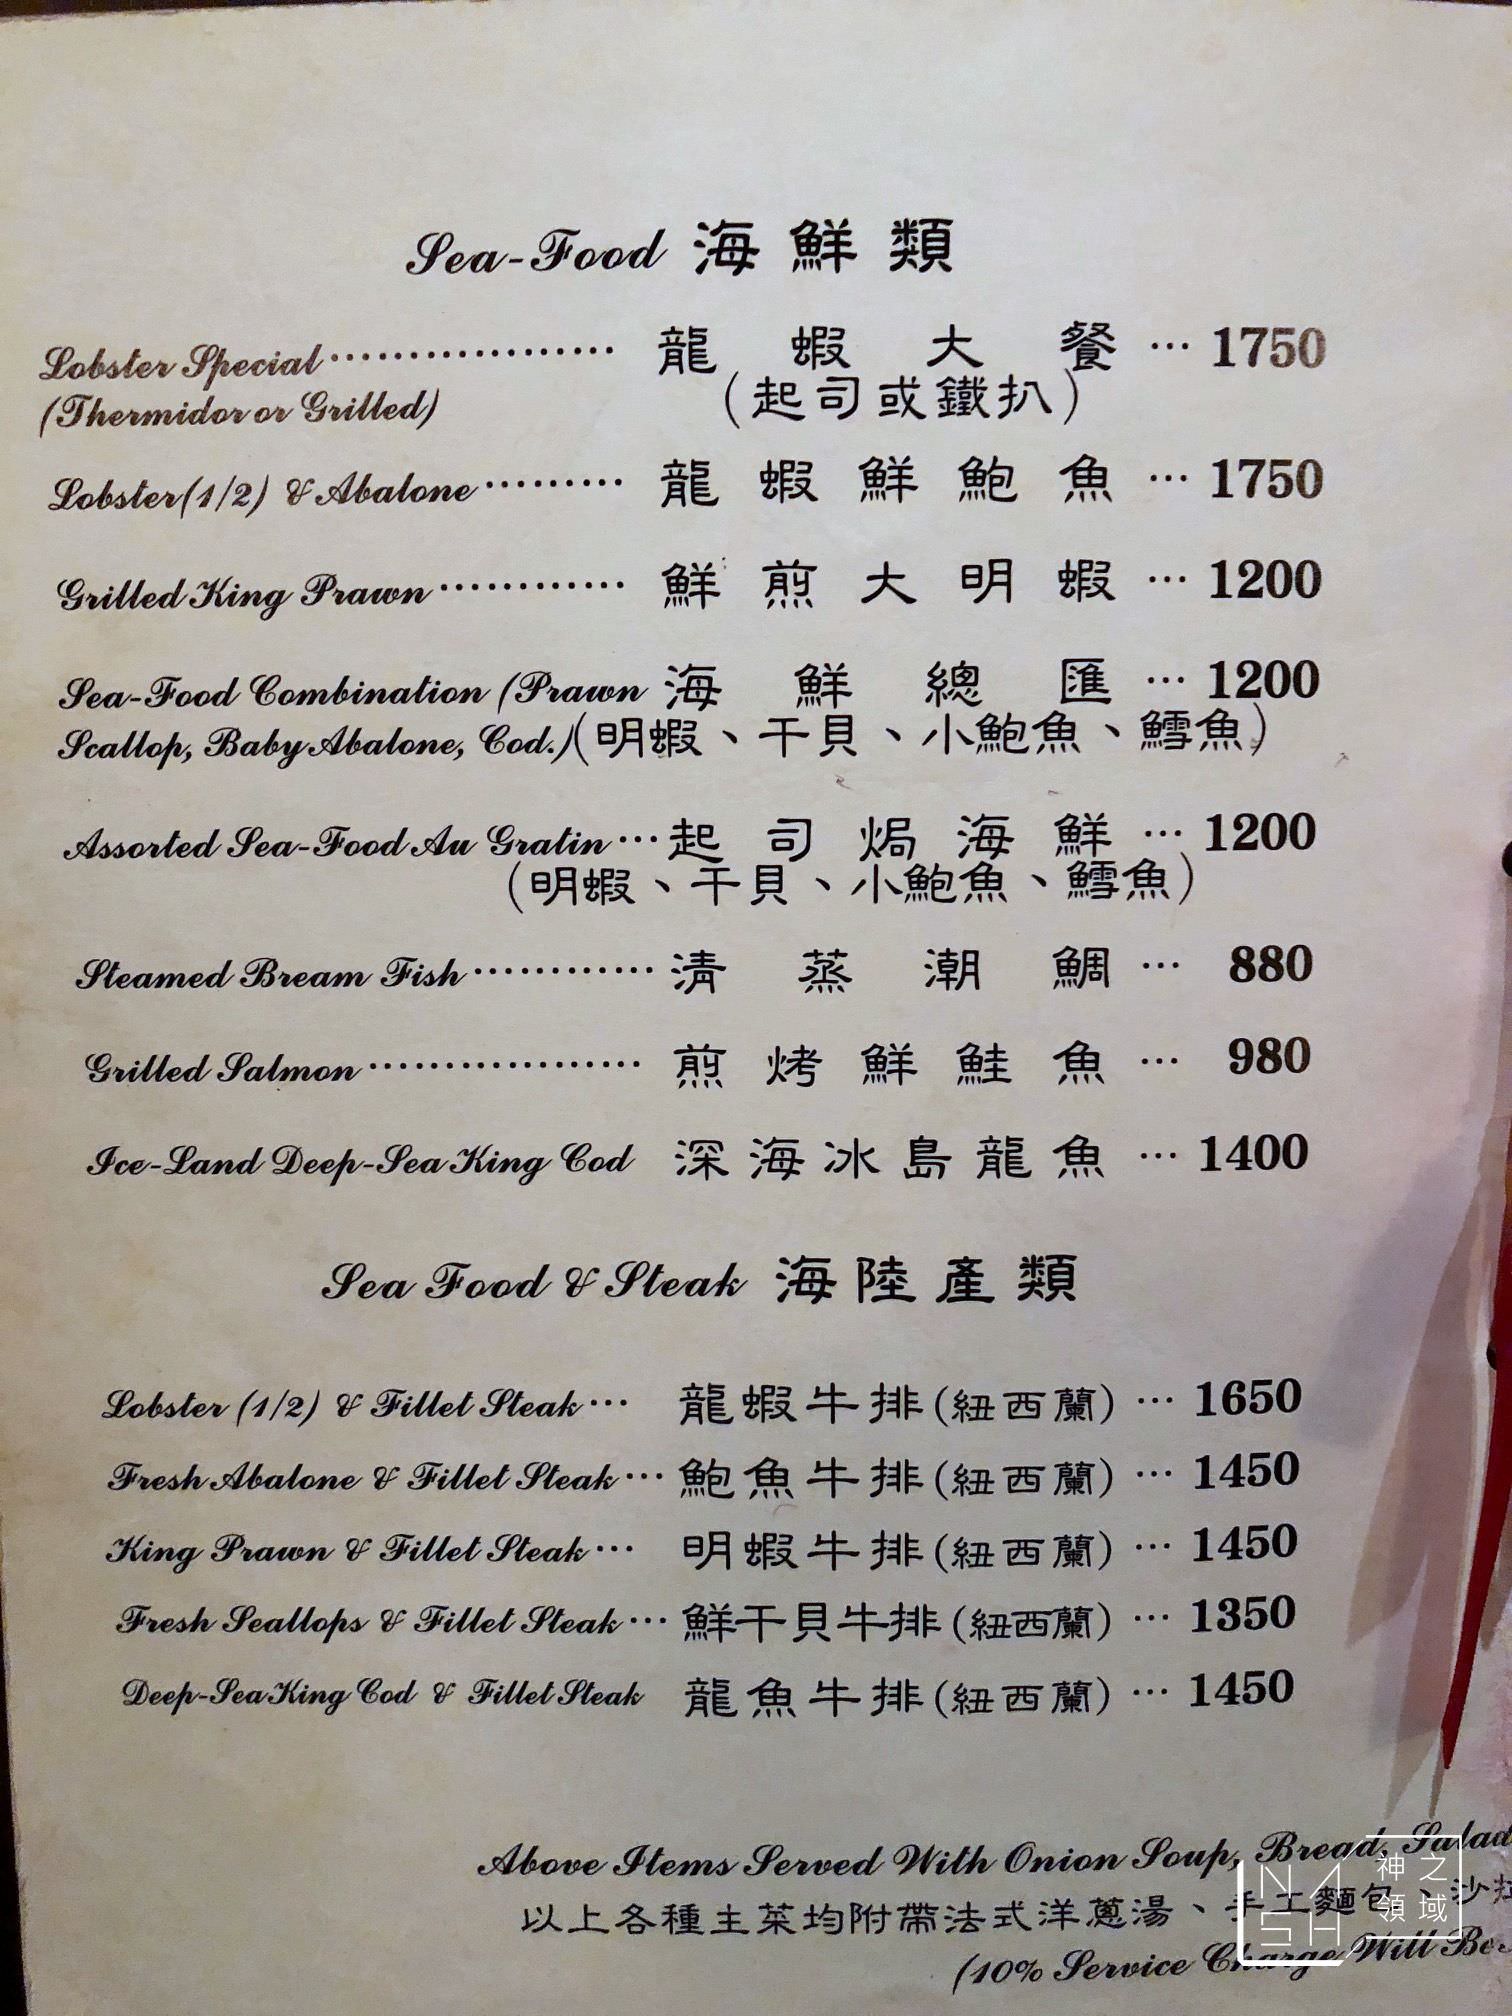 Sea-Food 海鮮類
Lobster Special ·················· 龍蝦大餐 ··· 1750
(Thermidor or Grilled) (起司或鐵扒)
Lobster(1/2) & Abalone ········· 龍蝦鮮鮑魚 ··· 1750
Grilled King Prawn ············ 鮮煎大明蝦 ··· 1200
Sea-Food Combination (Prawn 海鮮總匯 ··· 1200
Scallop, Baby Abalone, Cod.) (明蝦、干貝、小鮑魚、鱈魚)
Assorted Sea-Food Au Gratin ··· 起司焗海鮮 ··· 1200
(明蝦、干貝、小鮑魚、鱈魚)
Steamed Bream Fish ············ 清蒸潮鯛 ··· 880
Grilled Salmon ·················· 煎烤鮮鮭魚 ··· 980
Ice-Land Deep-Sea King Cod 深海冰島龍魚 ··· 1400
Sea Food & Steak 海陸產類
Lobster (1/2) & Fillet Steak ··· 龍蝦牛排(紐西蘭) ··· 1650
Fresh Abalone & Fillet Steak ··· 鮑魚牛排(紐西蘭) ··· 1450
King Prawn & Fillet Steak ··· 明蝦牛排(紐西蘭) ··· 1450
Fresh Seallops & Fillet Steak ··· 鮮干貝牛排(紐西蘭) ··· 1350
Deep-Sea King Cod & Fillet Steak 龍魚牛排(紐西蘭) ··· 1450
Above Items Served With Onion Soup, Bread, Salad
以上各種主菜均附帶法式洋蔥湯、手工麵包、沙拉
(10% Service Charge Will Be
神之
領域